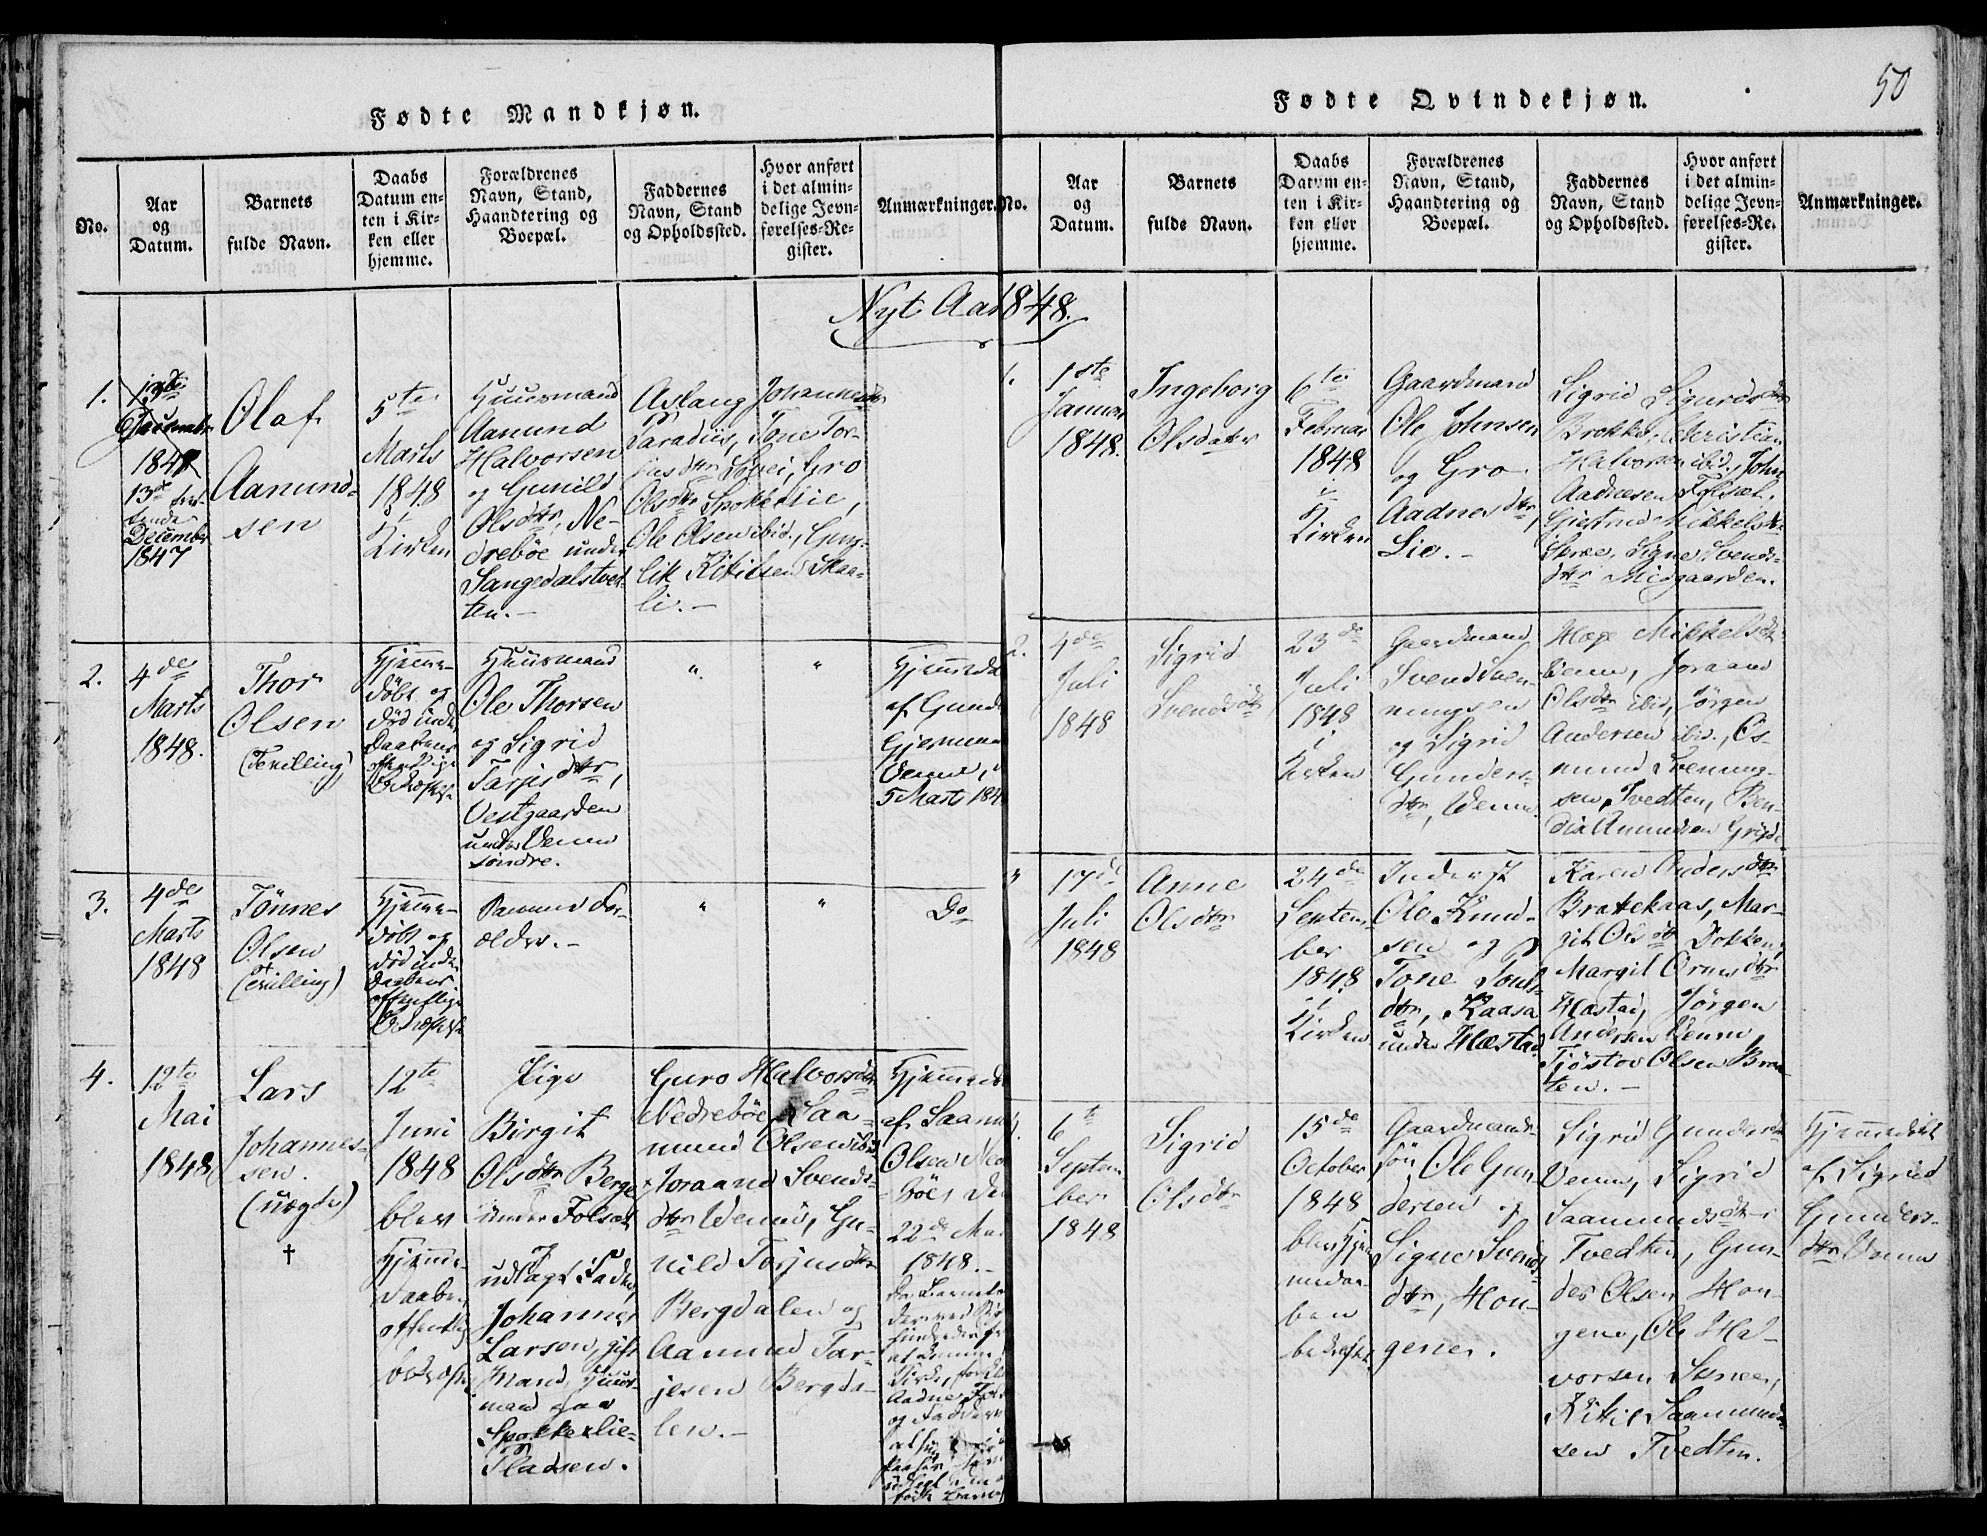 50
Fødte Mandkjøn.
No.
Aar
og
Datum.
Barnets
fulde Navn.
Daabs
Datum en-
ten i Kir-
ken eller
hjemme.
Forældrenes
Navn, Stand,
Haandtering og
Boepæl.
Faddernes
Navn, Stand
og Opholdssted.
Hvor anført
i det almin-
delige Jevn-
førelses-Re-
gister.
Anmærkninger.
Nyt Aar 1848.
1.
1847
13de
December
1847
Olaf
Aanund-
sen
5te
Marts
1848
i
Kirken
Huusmand
Aanund
Halvorsen
og Gunild
Olsdtr, Ne-
drebøe under
Langedalstved-
ten.-
Aslaug Johannesdtr
Paradiis, Tone Tor-
jusdtr, Gro
Olsdtr Spokkelie,
Ole Olsen ibid., Gun-
lik Kitilsen Skaa-
li.-
2.
4de
Marts
1848.
Thor
Olsen
(Tvilling)
Hjemme-
døbt og
død inden
Daabens
offentlige
Bekræftelse
Huusmand
Ole Thorsen
og Sigrid
Tarjeisdtr,
Vestgaarden
under Venne
søndre.
"
"
Hjemmed
af Gund
Gjermun
Venne,
5 Marts 184
3.
4de
Marts
1848
Tønnes
Olsen
(Tvilling)
Hjemme-
døbt og
død inden
Daabens
offentlige
Bekræftelse
Samme For-
ældre.-
"
"
Do
4.
12te
Mai
1848
Lars
Johannes-
sen.
(uægte)
†
12te
Juni
1848
blev
Hjemme-
daaben
offentlig
bekræftet
Pige
Birgit
Olsdtr Berge
under Folsæt
udlagt Fader
Johannes
Larsen, gift
Mand, Huus-
mand paa
Spokkelie-
Pladsen.
Guro Halvorsdtr
Nedrebøe, Saa-
mund Olsen ibid.
Joraand Svends-
dtr Venne, Gu-
nild Torjusdtr
Bergdalen og
Aamund Tar-
jesen Bergda-
len.-
Hjemmed
af Saamu
Olsen Ned
bøe, den
22de Mai
1848.-
Fødte Qvindekjøn.
No.
Aar
og
Datum.
Barnets
fulde Navn.
Daabs
Datum en-
ten i Kir-
ken eller
hjemme.
Forældrenes
Navn, Stand,
Haandtering og
Boepæl.
Faddernes
Navn, Stand
og Opholdssted.
Hvor anført
i det almin-
delige Jevn-
førelses-Re-
gister.
Anmærkninger.
1.
1ste
Januar
1848.
Ingeborg
Olsdatter
6te
Februar
1848
i
Kirken
Gaardmand
Ole Johnsen
og Gro
Aadnesdtr,
Lie.-
Sigrid Sigurdsdtr
Brokke, Christian
Halvorsen ibid., John
Aadnesen Folsæt,
Gjertrud Mikkelsdtr
Signe Svends-
dtr Midgaarden.
2.
4de
Juli
1848
Sigrid
Svendsdtr
23de
Juli
1848
i
Kirken
Gaardmand
Svend Sven-
ningsen
og Sigrid
Gunders-
dtr, Venne.
Hæge Mikkelsdtr
Venne, Joraand
Olsdtr ibid, Jørgen
Andersen ibid., Os-
mund Svenning-
sen Tvedten, Ben-
dix Aanundsen
3
17de
Juli
1848
Anne
Olsdtr
24de
Septem-
ber
1848
i
Kirken
Inderst
Ole Knud-
sen og
Tone
dtr, Kaasa
under Hæstad
Karen Andersdtr
Brakekaas, Mar-
git Olsdtr Dokken,
Margit Ormsdtr
Hæstad, Jørgen
Andersen Venne
Tjøstov Olsen Braa-
ten.-
6te
Septem-
ber
1848
Sigrid
Olsdtr
15de
October
1848
blev Hjem-
medaa-
ben
bekræftet
Gaardmands-
søn Ole Gun-
dersen og
Signe Svends-
dtr, Hon-
gene.
Sigrid Gundersdtr
Venne, Sigrid
Saamundsdtr
Tvedten, Gun-
der Olsen Hon-
gene, Ole Hal-
vorsen
Kitil Saamund-
sen Tvedten.
Hjemmedøbt
af Sigrid
Gunders-
dtr Venne